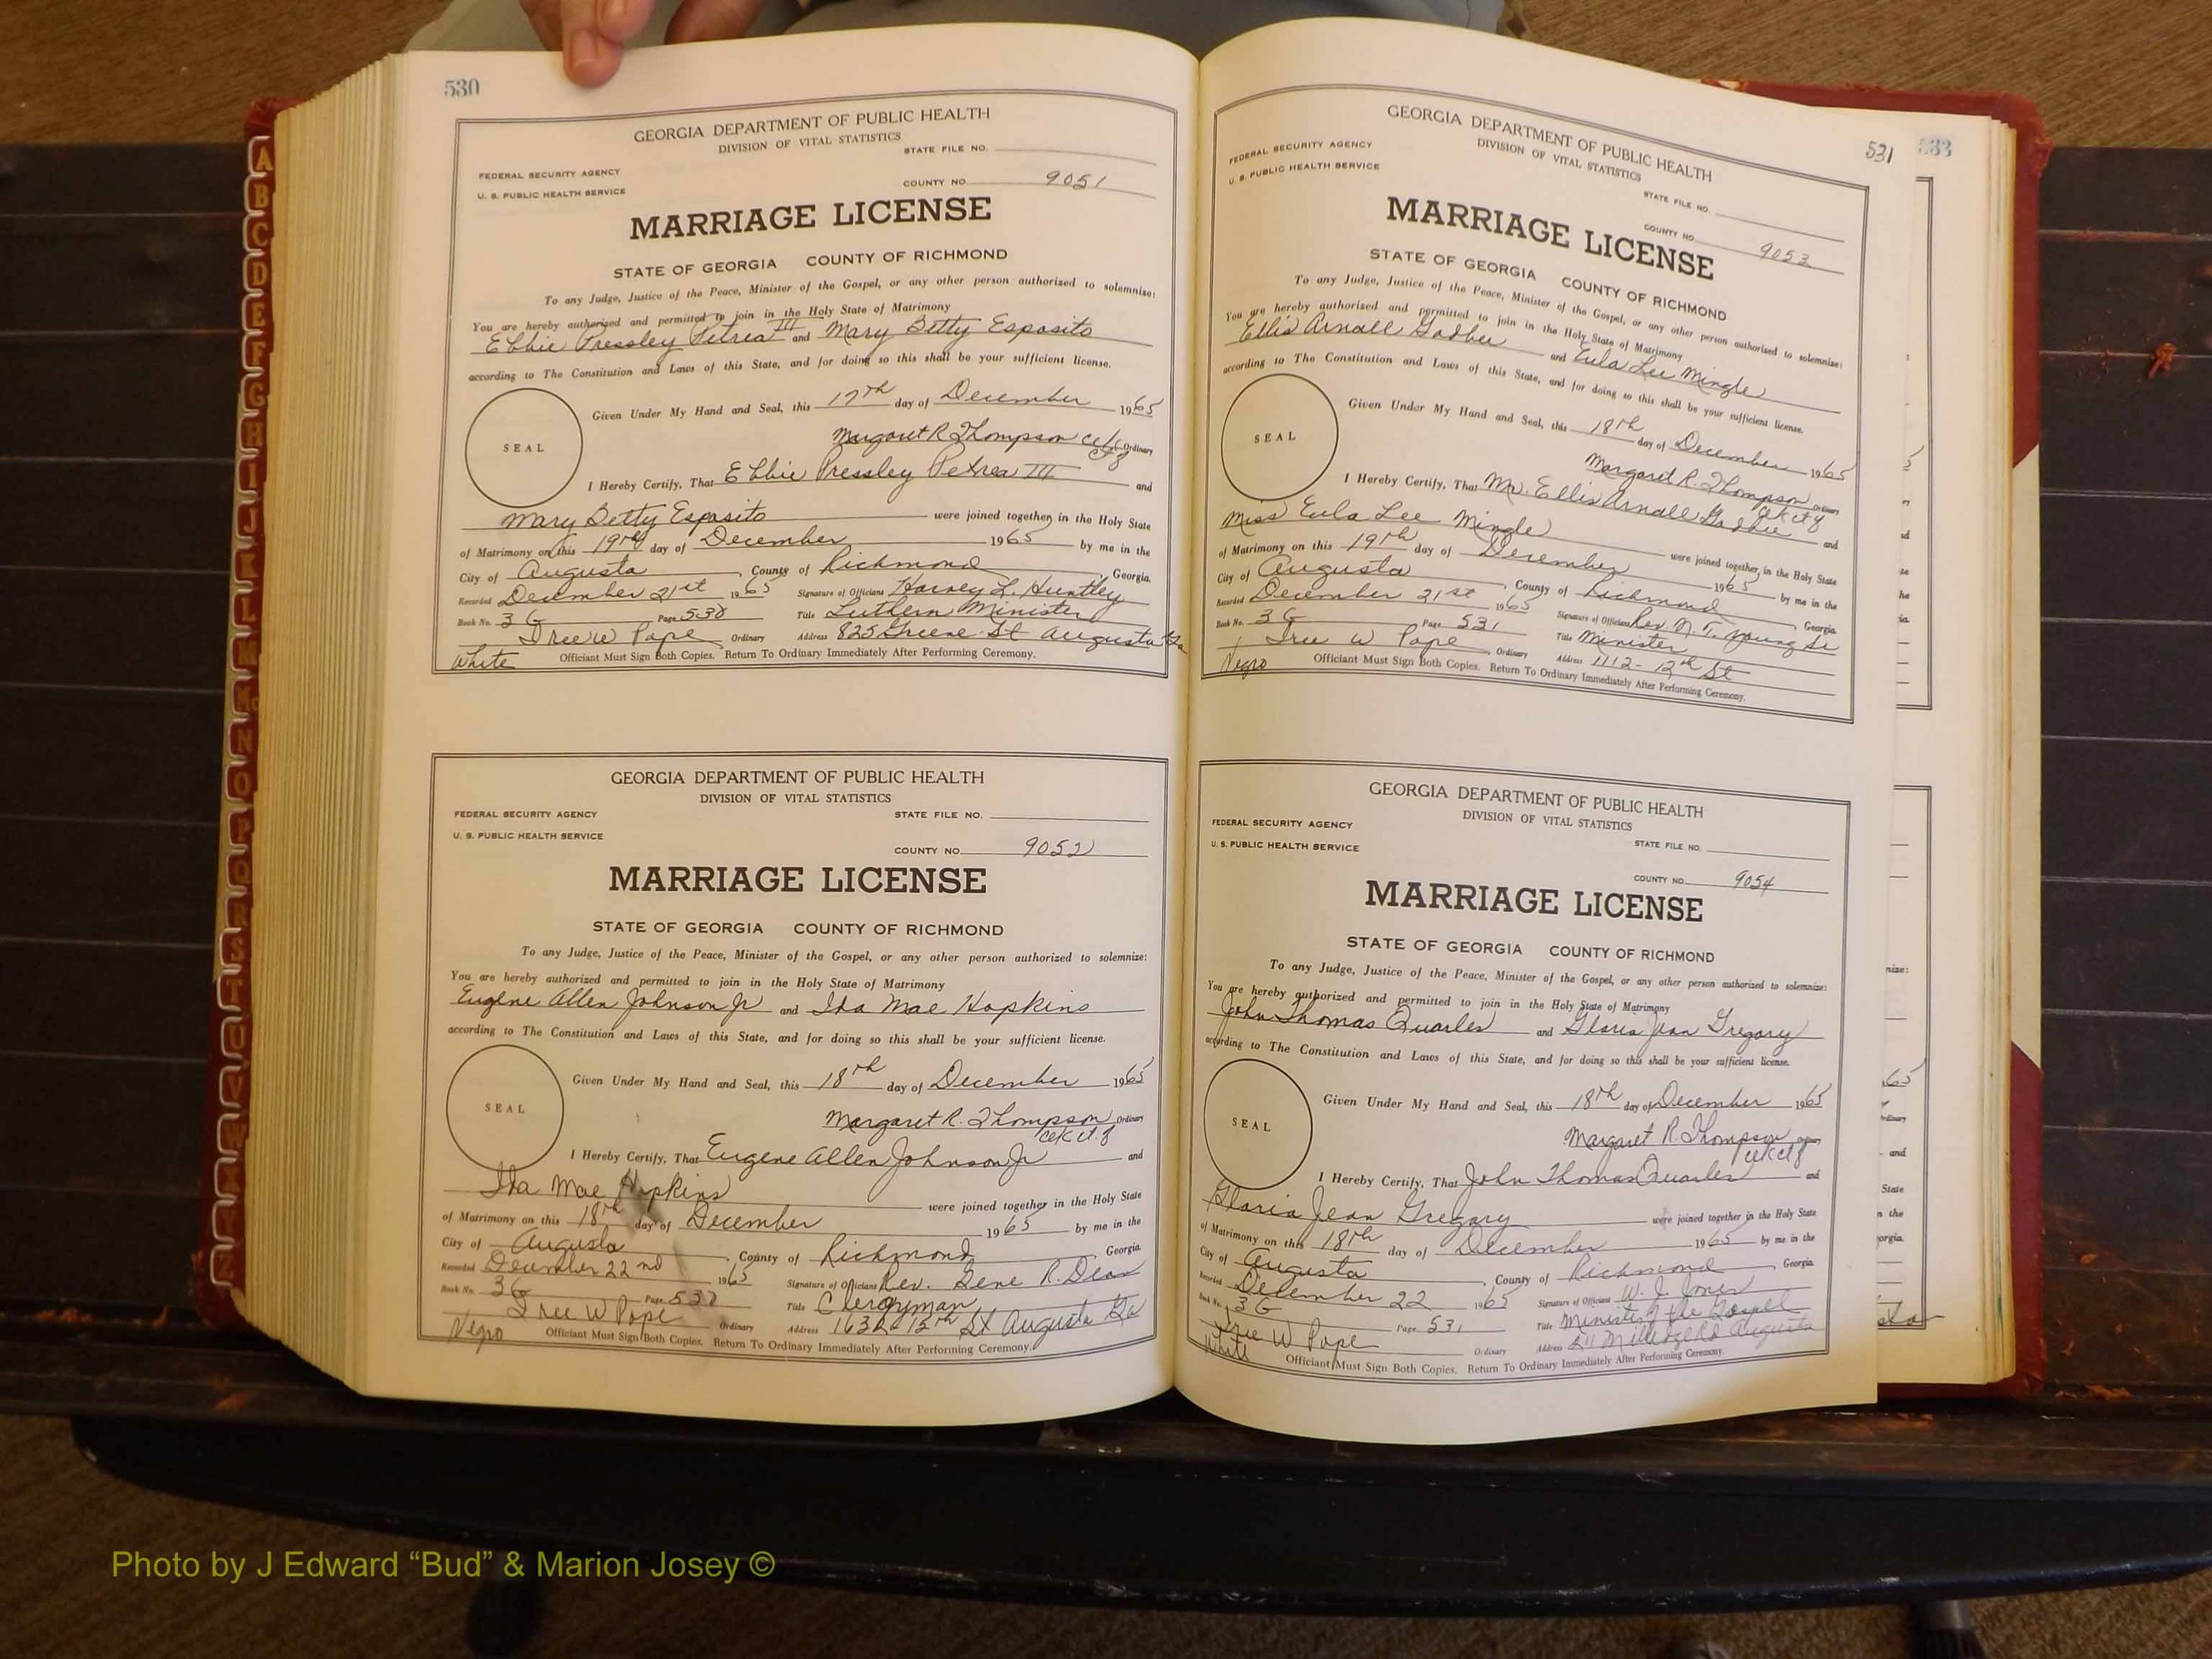 530
GEORGIA DEPARTMENT OF PUBLIC HEALTH
DIVISION OF VITAL STATISTICS
STATE FILE NO.
FEDERAL SECURITY AGENCY
U. S. PUBLIC HEALTH SERVICE
COUNTY NO. 9051
MARRIAGE LICENSE
STATE OF GEORGIA COUNTY OF RICHMOND
To any Judge, Justice of the Peace, Minister of the Gospel, or any other person authorized to solemnize:
You are hereby authorized and permitted to join in the Holy State of Matrimony
Ebbie Pressley Petrea III and Mary Betty Esposito
according to The Constitution and Laws of this State, and for doing so this shall be your sufficient license.
SEAL
Given Under My Hand and Seal, this 17th day of December 1965
Margaret R. Thompson Ordinary
I Hereby Certify, That Ebbie Pressley Petrea III and
Mary Betty Esposito were joined together in the Holy State
of Matrimony on this 19th day of December 1965 by me in the
City of Augusta, County of Richmond, Georgia.
Recorded December 21st 1965 Signature of Officiant Harvey L. Huntley
Book No. 3G Page 530 Title Luthern Minister
Tree W Pope Ordinary Address 825 Greene St Augusta Ga
White Officiant Must Sign Both Copies. Return To Ordinary Immediately After Performing Ceremony.
GEORGIA DEPARTMENT OF PUBLIC HEALTH
DIVISION OF VITAL STATISTICS
FEDERAL SECURITY AGENCY STATE FILE NO.
U. S. PUBLIC HEALTH SERVICE
COUNTY NO. 9052
MARRIAGE LICENSE
STATE OF GEORGIA COUNTY OF RICHMOND
To any Judge, Justice of the Peace, Minister of the Gospel, or any other person authorized to solemnize:
You are hereby authorized and permitted to join in the Holy State of Matrimony
Eugene Allen Johnson Jr and Ida Mae Hopkins
according to The Constitution and Laws of this State, and for doing so this shall be your sufficient license.
SEAL
Given Under My Hand and Seal, this 18th day of December 1965
Margaret R. Thompson Ordinary
I Hereby Certify, That Eugene Allen Johnson Jr and
Ida Mae Hopkins were joined together in the Holy State
of Matrimony on this 18th day of December 1965 by me in the
City of Augusta, County of Richmond Georgia.
Recorded December 22nd 1965 Signature of Officiant Rev. Gene R. Dean
Book No. 3G Page 530 Title Clergyman
Tree W Pope Ordinary Address 15th St Augusta Ga
Negro Officiant Must Sign Both Copies. Return To Ordinary Immediately After Performing Ceremony.
531
533
GEORGIA DEPARTMENT OF PUBLIC HEALTH
DIVISION OF VITAL STATISTICS
FEDERAL SECURITY AGENCY
U. S. PUBLIC HEALTH SERVICE
STATE FILE NO.
COUNTY NO. 9053
MARRIAGE LICENSE
STATE OF GEORGIA COUNTY OF RICHMOND
To any Judge, Justice of the Peace, Minister of the Gospel, or any other person authorized to solemnize:
You are hereby authorized and permitted to join in the Holy State of Matrimony
Ellis Arnall and Eula Lee Mingle
according to The Constitution and Laws of this State, and for doing so this shall be your sufficient license.
SEAL
Given Under My Hand and Seal, this 18th day of December 1965
Margaret R. Thompson Ordinary
I Hereby Certify, That Mr. Ellis Arnall and
Miss Eula Lee Mingle were joined together in the Holy State
of Matrimony on this 19th day of December 1965 by me in the
City of Augusta, County of Richmond Georgia.
Recorded December 21st 1965 Signature of Officiant Rev. N. T. Young Sr
Book No. 3G Page 531 Title Minister
Tree W Pope Ordinary Address 1112 - 12th St
Negro Officiant Must Sign Both Copies. Return To Ordinary Immediately After Performing Ceremony.
GEORGIA DEPARTMENT OF PUBLIC HEALTH
DIVISION OF VITAL STATISTICS
FEDERAL SECURITY AGENCY
U. S. PUBLIC HEALTH SERVICE
STATE FILE NO.
COUNTY NO. 9054
MARRIAGE LICENSE
STATE OF GEORGIA COUNTY OF RICHMOND
To any Judge, Justice of the Peace, Minister of the Gospel, or any other person authorized to solemnize:
You are hereby authorized and permitted to join in the Holy State of Matrimony
John Thomas Quarles and Gloria Jean Gregory
according to The Constitution and Laws of this State, and for doing so this shall be your sufficient license.
SEAL
Given Under My Hand and Seal, this 18th day of December 1965
Margaret R. Thompson Ordinary
I Hereby Certify, That John Thomas Quarles and
Gloria Jean Gregory were joined together in the Holy State
of Matrimony on this 18th day of December 1965 by me in the
City of Augusta, County of Richmond, Georgia.
Recorded December 22 1965 Signature of Officiant W. J. Jones
Book No. 3G Page 531 Title Minister of the Gospel
Tree W Pope Ordinary Address Milledge Rd Augusta
White Officiant Must Sign Both Copies. Return To Ordinary Immediately After Performing Ceremony.
A
B
C
D
E
F
G
H
I
J
K
L
M
Mc
N
O
P
Q
R
S
T
U
V
W
X
Y
Z
Photo by J Edward “Bud” & Marion Josey ©